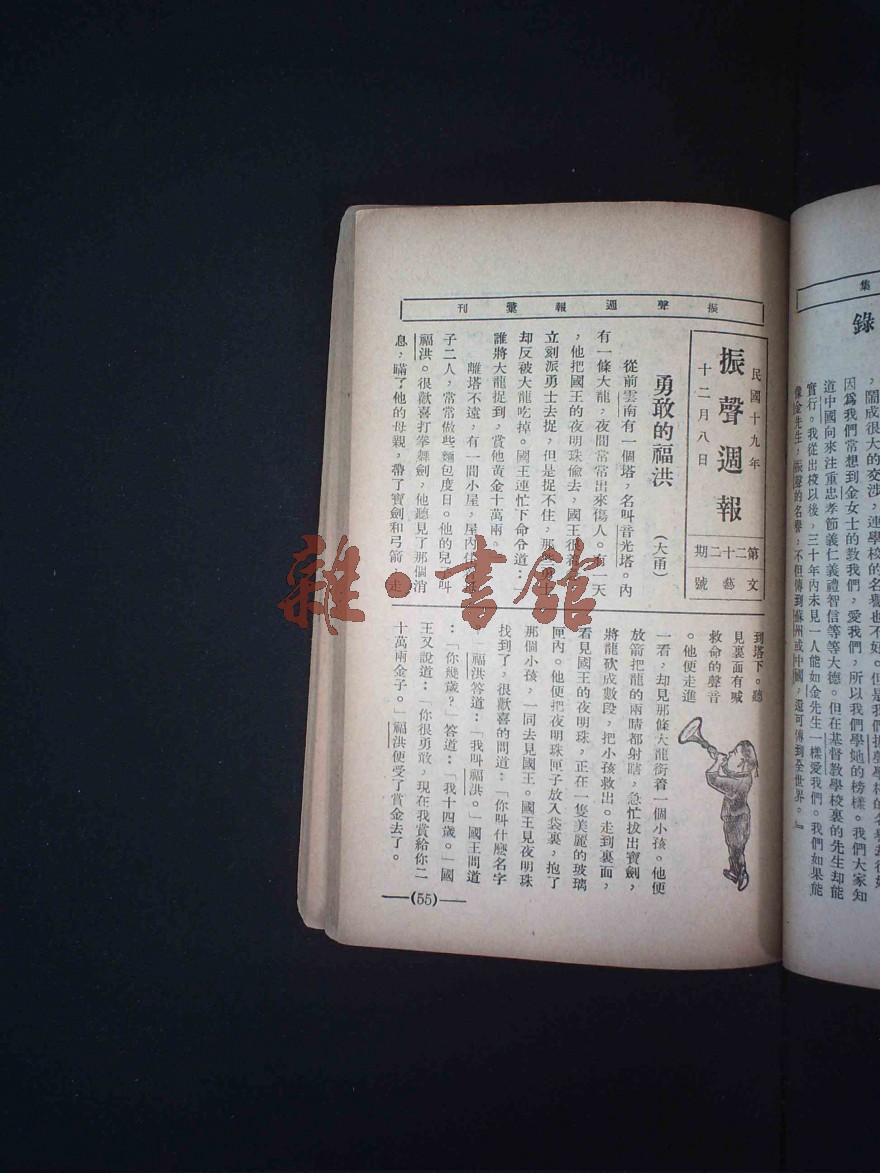 集
錄
，鬧成很大的交涉，連學校的名譽也不好。但是我們振聲學校的名譽却很好
因爲我們常想到金女士的教我們，愛我們，所以我們學她的榜樣。我們大家知
道中國向來注重忠孝節義仁義禮智信等等大德。但在基督教學校裏的先生却能
實行。我從出校以後，三十年內未見一人能如金先生一樣愛我們。我們如果能
像金先生，振聲的名譽，不但傳到蘇州或中國，還可傳到全世界。』
振聲週報彙刊
民國十九年
振聲週報
十二月八日
第二十二期
文藝號
勇敢的福洪
（大甬）
從前雲南有一個塔，名叫音光塔。內
有一條大龍，夜間常常出來傷人。有一天
，他把國王的夜明珠偷去，國王很
立刻派勇士去捉，但是捉不住，那
却反被大龍吃掉。國王連忙下命令道：
誰將大龍捉到，賞他黃金十萬兩。
離塔不遠，有一間小屋，屋內住
子二人，常常做些麵包度日。他的兒 叫
福洪。很歡喜打拳舞劍，他聽見了那個消
息，瞞了他的母親，帶了寶劍和弓箭，走
到塔下。聽
見裏面有喊
救命的聲音
。他便走進
一看，却見那條大龍銜着一個小孩。他便
放箭把龍的兩睛都射瞎，急忙拔出寶劍，
將龍砍成數段，把小孩救出。走到裏面，
看見國王的夜明珠，正在一隻美麗的玻璃
匣內。他便把夜明珠匣子放入袋裏，抱了
那個小孩，一同去見國王。國王見夜明珠
找到了，很歡喜的問道：「你叫什麼名字
」福洪答道：「我叫福洪。」國王問道
：「你幾歲？」答道：「我十四歲。」國
王又說道：「你很勇敢，現在我賞給你二
十萬兩金子。」福洪便受了賞金去了。
(55)
雜·書館